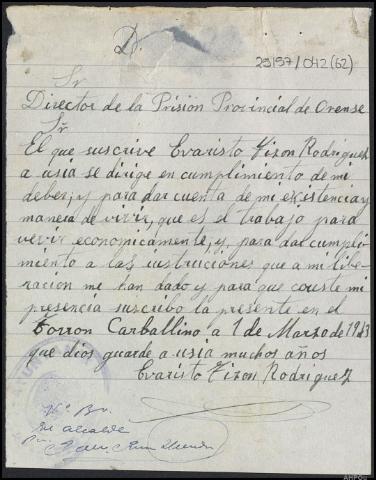 D.
25197/042(62)
Sr
Director de la Prisión Provincial de Orense
Sr
El que suscrive Evaristo Fizon Rodriguez
a usia se dirige en cumplimiento de mi
deber, y para dar cuenta de mi existencia y
manera de vivir, que es el trabajo para
vevir economicamente, y, para dar cumpli-
miento a las instruciónes que a mi libe-
racion me han dado y para que conste mi
presencia suscribo la presente en el
Torron Carballino a 1 de Marzo de 1943
que dios guarde a usia muchos años
Evaristo Fizon Rodriguez
Vº Bº
El alcalde
AHPOu